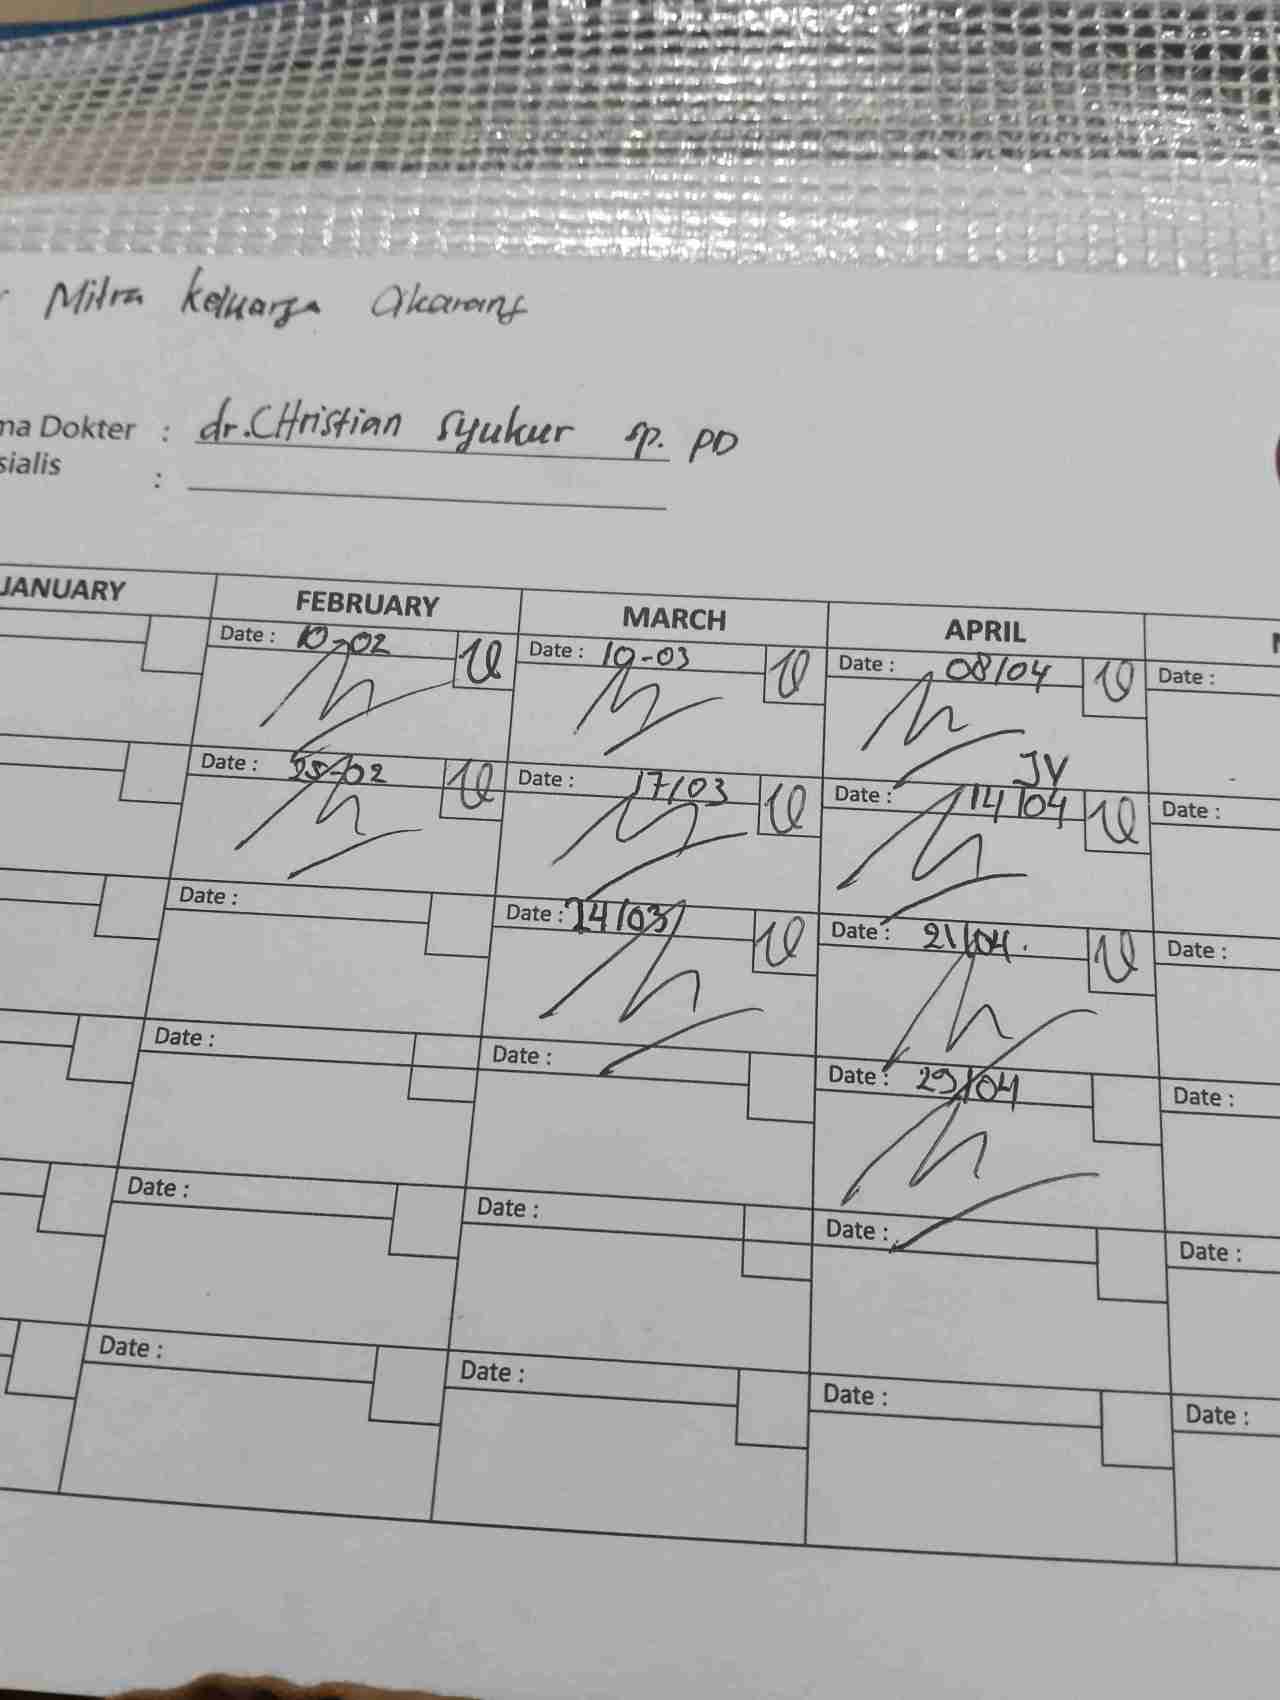 Mitra keluarga Cikarang
ma Dokter : dr.CHristian Syukur sp. PD
sialis :
JANUARY FEBRUARY MARCH APRIL
Date : 10-02 Date : 10-03 Date : 08/04 Date :
JV
Date : 25-02 Date : 17/03 Date : 14/04 Date :
Date : Date : 24/03 Date : 21/04. Date :
Date : Date : Date : 29/04 Date :
Date : Date : Date : Date :
Date : Date : Date : Date :